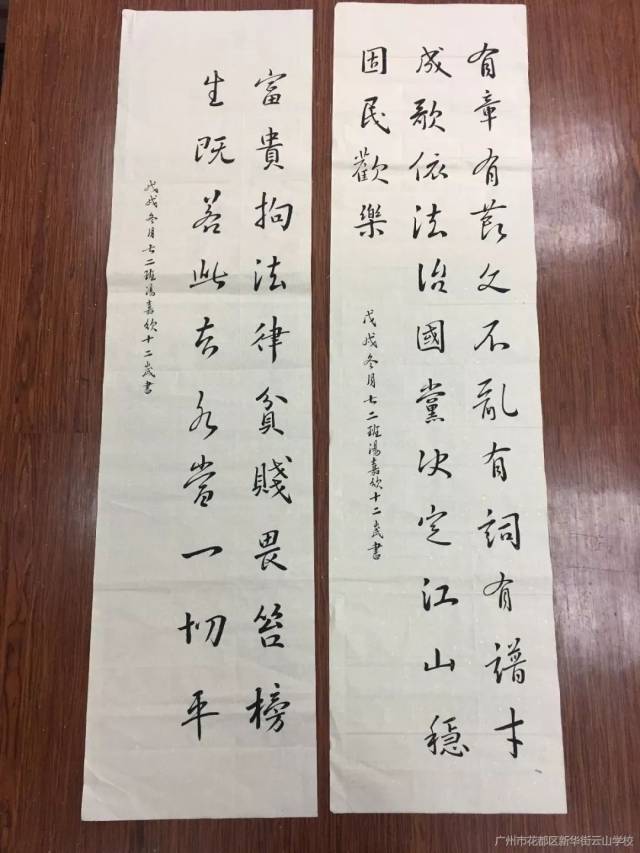 有章有莭文不亂有詞有譜才
成歌依法治國黨决定江山穩
固民歡樂
戊戌冬月七二班湯嘉欣十二歲書
富貴拘法律貧賤畏笞榜
生既若此苦死當一切平
戊戌冬月七二班湯嘉欣十二歲書
广州市花都区新华街云山学校